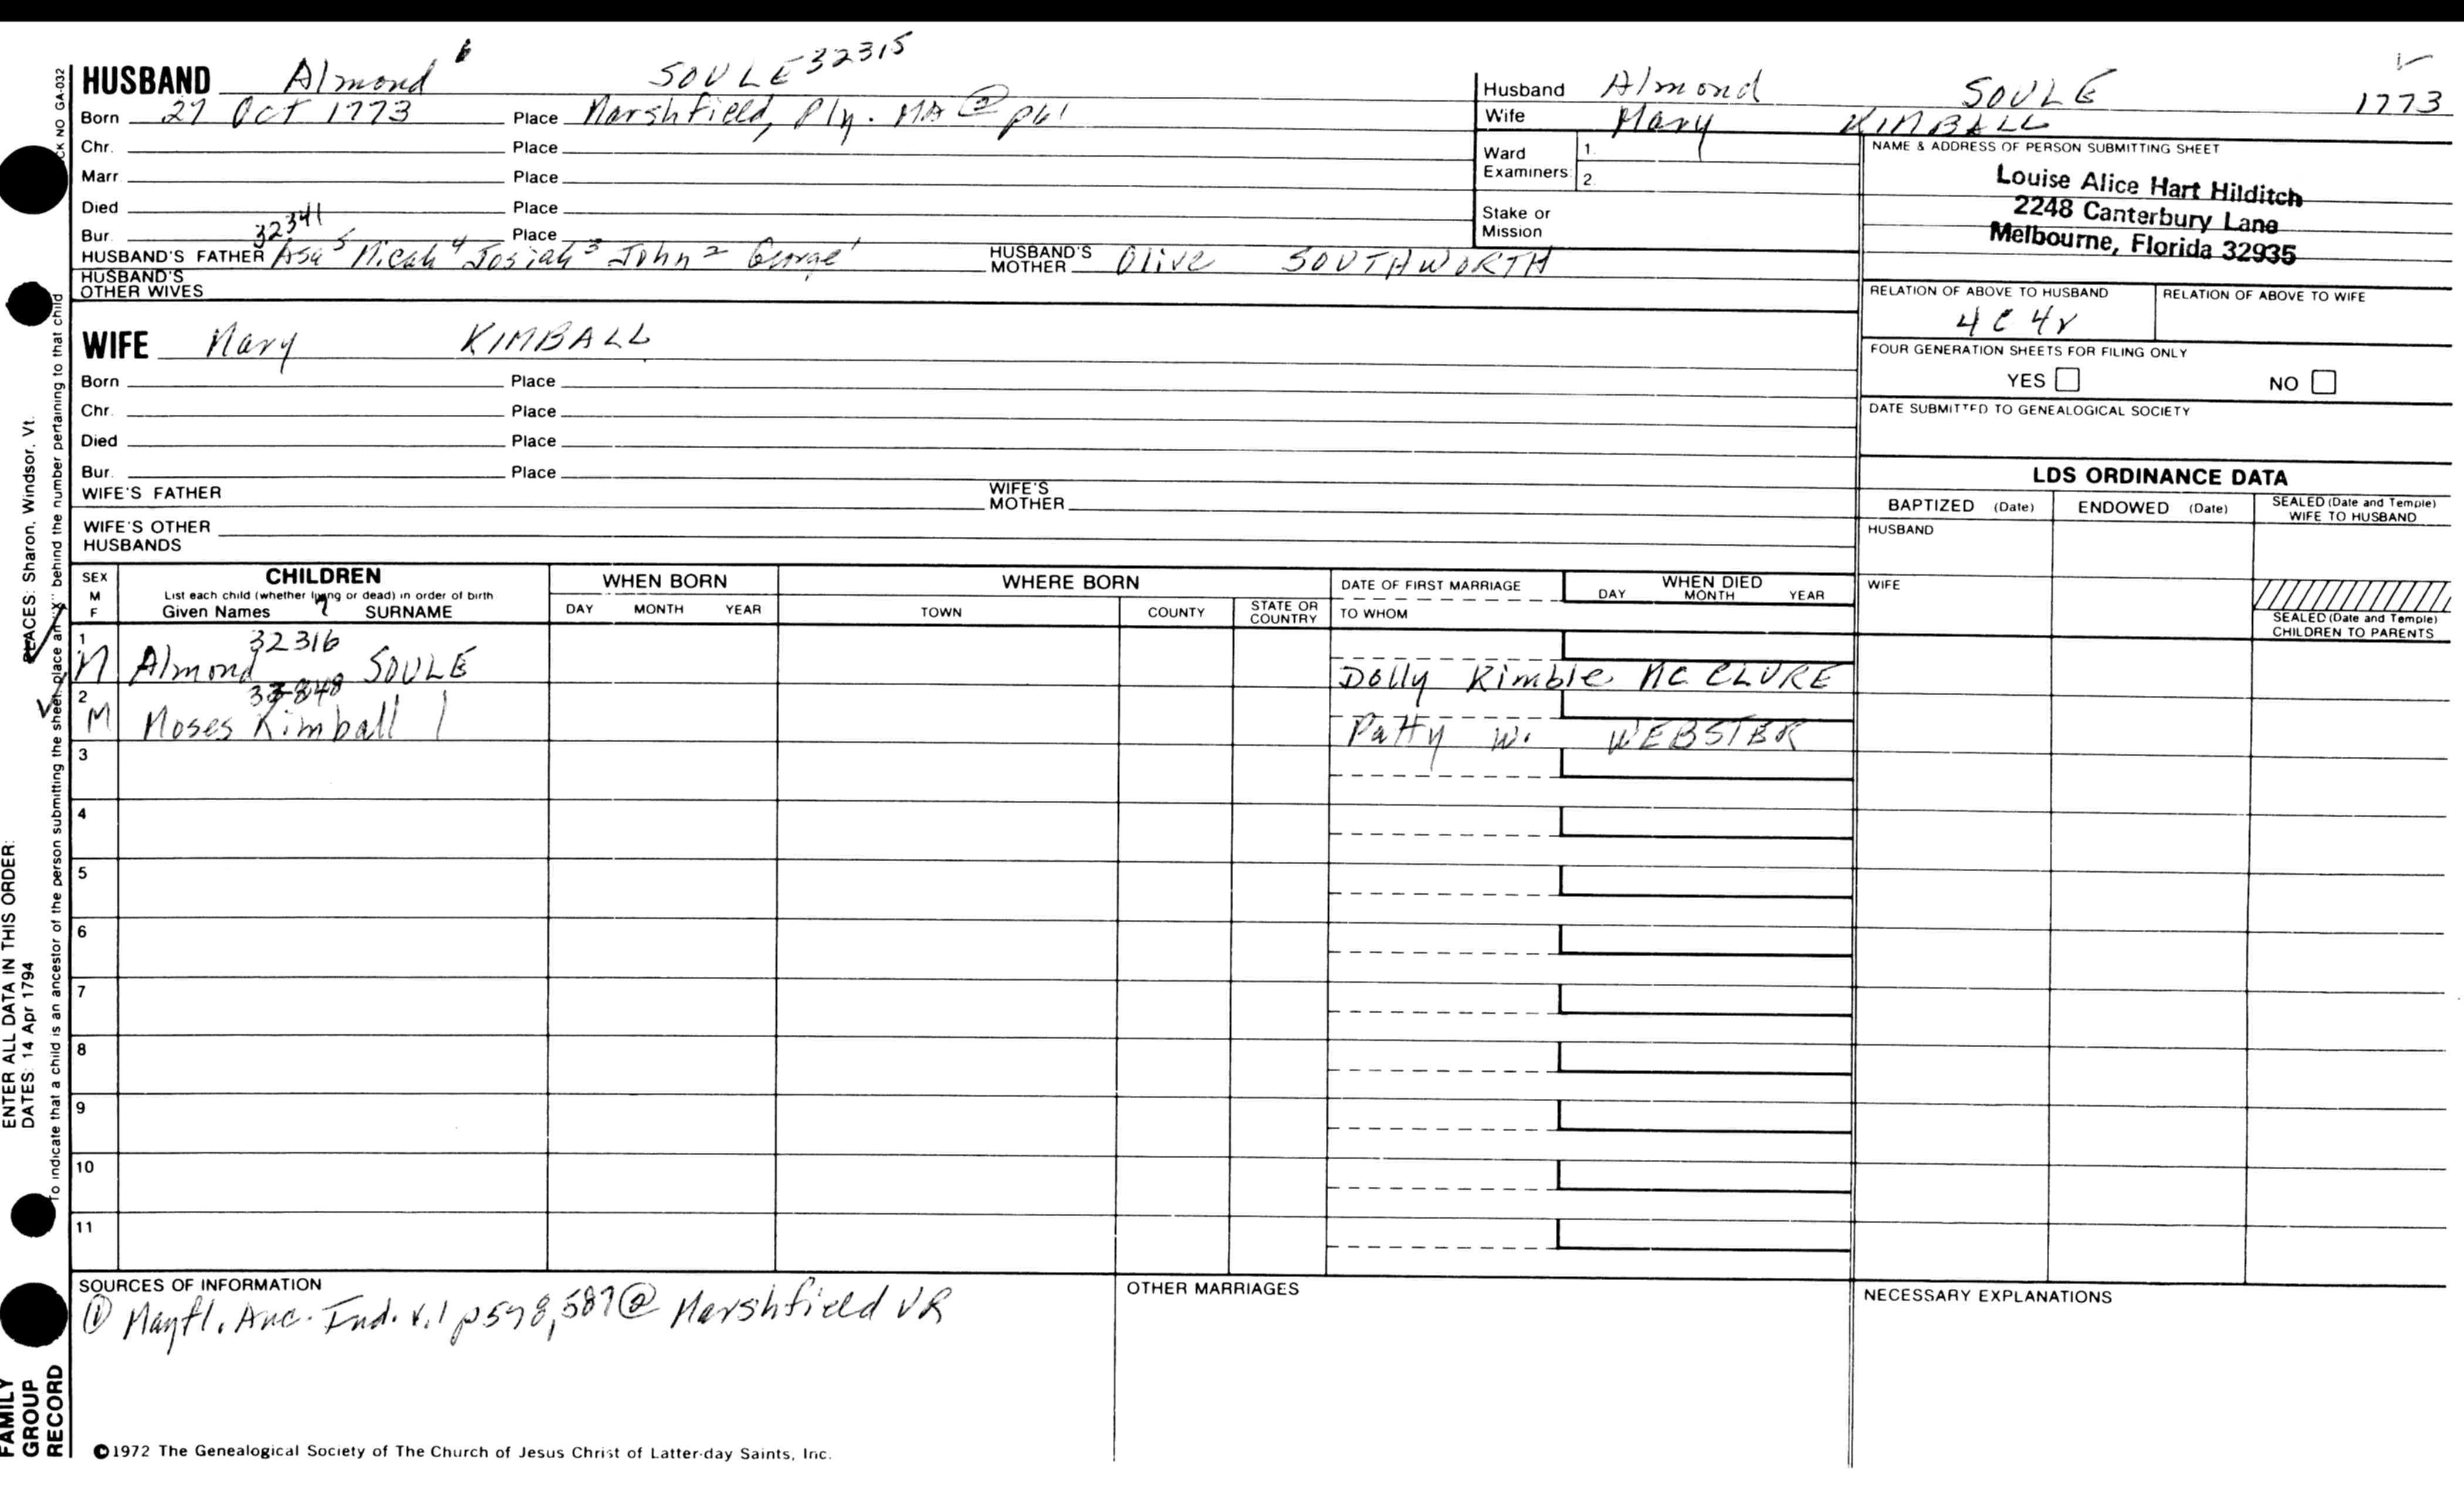 HUSBAND Almond 6 SOULE 32315
Born 27 Oct 1773 Place Marshfield, Ply. MA @ p61
Chr. Place
Marr. Place
Died Place
Bur. Place
32341
HUSBAND'S FATHER Asa 5 Micah 4 Josiah 3 John 2 George 1 HUSBAND'S MOTHER Olive SOUTHWORTH
HUSBAND'S OTHER WIVES
WIFE Mary KIMBALL
Born Place
Chr. Place
Died Place
Bur. Place
WIFE'S FATHER WIFE'S MOTHER
WIFE'S OTHER HUSBANDS
Husband Almond SOULE 1773
Wife Mary KIMBALL
Ward Examiners: 1. 2.
Stake or Mission
NAME & ADDRESS OF PERSON SUBMITTING SHEET
Louise Alice Hart Hilditch
2248 Canterbury Lane
Melbourne, Florida 32935
RELATION OF ABOVE TO HUSBAND RELATION OF ABOVE TO WIFE
4C4r
FOUR GENERATION SHEETS FOR FILING ONLY
YES NO
DATE SUBMITTED TO GENEALOGICAL SOCIETY
LDS ORDINANCE DATA
BAPTIZED (Date) ENDOWED (Date) SEALED (Date and Temple) WIFE TO HUSBAND
HUSBAND
WIFE
SEALED (Date and Temple) CHILDREN TO PARENTS
SEX M F
CHILDREN
List each child (whether living or dead) in order of birth
Given Names 7 SURNAME
WHEN BORN
DAY MONTH YEAR
WHERE BORN
TOWN COUNTY STATE OR COUNTRY
DATE OF FIRST MARRIAGE
TO WHOM
WHEN DIED
DAY MONTH YEAR
32316
1 M Almond SOULE Dolly Kimble MC CLURE
2 M Moses Kimball Patty W. WEBSTER
3
4
5
6
7
8
9
10
11
SOURCES OF INFORMATION
① Mayfl. Anc. Ind. v.1 p578,587 @ Marshfield VR
OTHER MARRIAGES
NECESSARY EXPLANATIONS
©1972 The Genealogical Society of The Church of Jesus Christ of Latter-day Saints, Inc.
CK NO GA-032
To indicate that a child is an ancestor of the person submitting the sheet, place an "X" behind the number pertaining to that child
ENTER ALL DATA IN THIS ORDER:
DATES: 14 Apr 1794
PLACES: Sharon, Windsor, Vt.
FAMILY
GROUP
RECORD